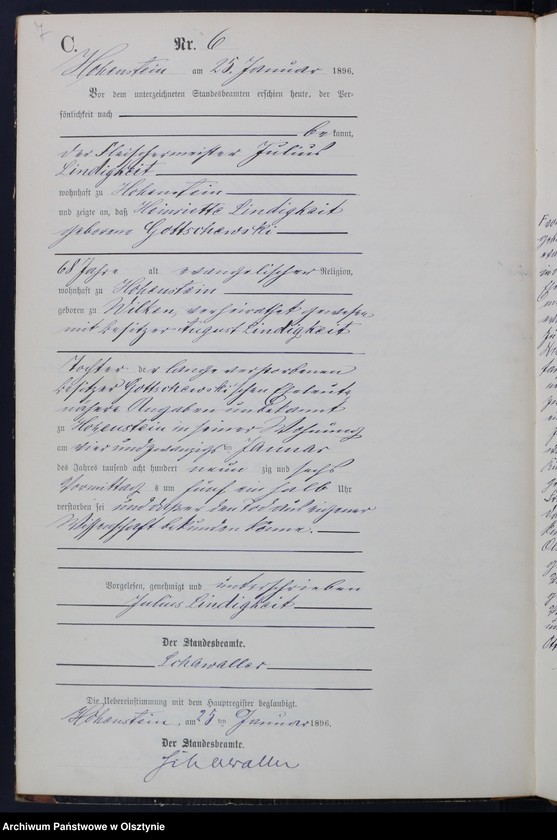 7
C.
Nr. 6
Hohenstein am 25. Januar 1896.
Vor dem unterzeichneten Standesbeamten erschien heute, der Per-
sönlichkeit nach
be kannt,
der Fleischermeister Julius
Lindigkeit
wohnhaft zu Hohenstein
und zeigte an, daß Heinriette Lindigkeit
geborene Gottschewski
68 Jahre alt evangelischer Religion,
wohnhaft zu Hohenstein
geboren zu Wilken, verheirathet gewesen
mit Besitzer August Lindigkeit
Tochter der lange verstorbenen
Besitzer Gottschewski'schen Eheleute
nähere Angaben unbekannt
zu Hohenstein in seiner Wohnung
am vier und zwanzigsten Januar
des Jahres tausend acht hundert neun zig und sechs
Vormittags um fünf ein halb Uhr
verstorben sei und daß er den Tod aus eigener
Wissenschaft bekunden könne.
Vorgelesen, genehmigt und unterschrieben
Julius Lindigkeit
Der Standesbeamte.
Schawaller
Die Uebereinstimmung mit dem Hauptregister beglaubigt.
Hohenstein, am 25 ten Januar 1896.
Der Standesbeamte.
Schawaller
Archiwum Państwowe w Olsztynie